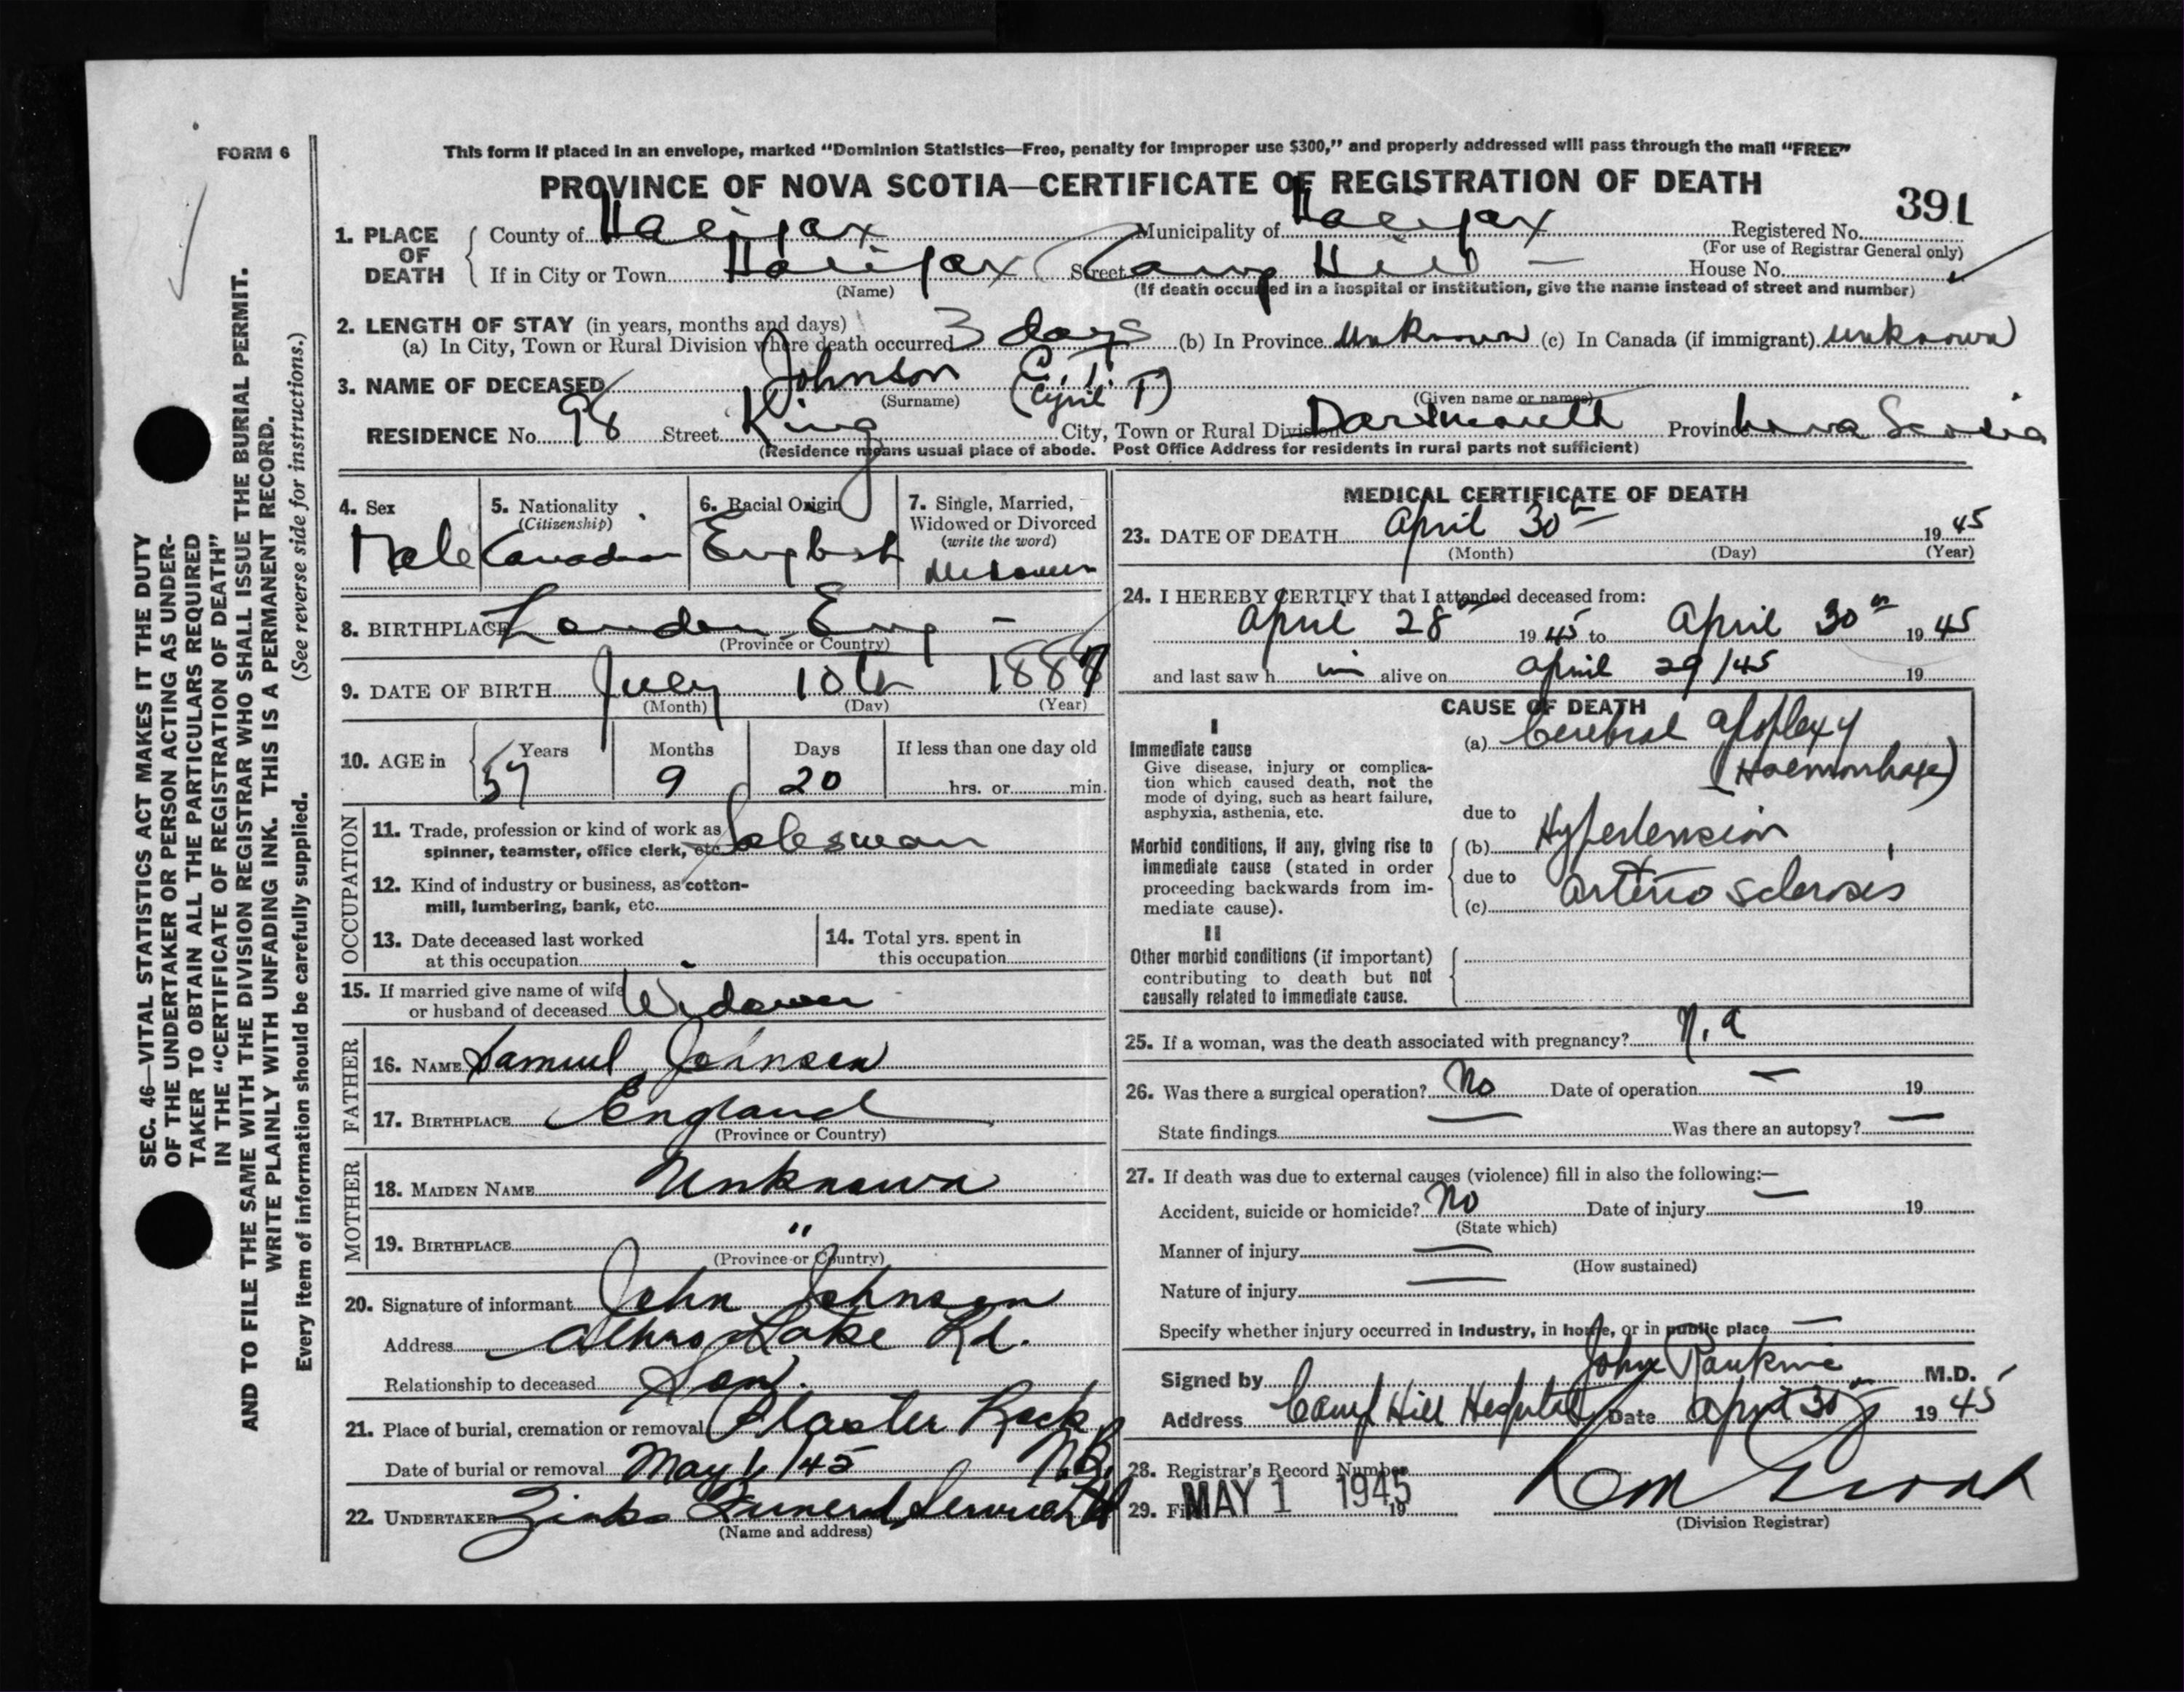 FORM 6
This form if placed in an envelope, marked “Dominion Statistics—Free, penalty for improper use $300,” and properly addressed will pass through the mail “FREE”
PROVINCE OF NOVA SCOTIA—CERTIFICATE OF REGISTRATION OF DEATH
391
1. PLACE OF DEATH
County of Halifax Municipality of Halifax Registered No.
(For use of Registrar General only)
If in City or Town Halifax Street Camp Hill — House No.
(Name) (If death occurred in a hospital or institution, give the name instead of street and number)
2. LENGTH OF STAY (in years, months and days)
(a) In City, Town or Rural Division where death occurred 3 days (b) In Province unknown (c) In Canada (if immigrant) unknown
3. NAME OF DECEASED Johnson C. T.
(Surname) (Cyril T) (Given name or names)
RESIDENCE No. 98 Street King City, Town or Rural Division Dartmouth Province Nova Scotia
(Residence means usual place of abode. Post Office Address for residents in rural parts not sufficient)
4. Sex Male
5. Nationality (Citizenship) Canadian
6. Racial Origin English
7. Single, Married, Widowed or Divorced (write the word) Widower
8. BIRTHPLACE London Eng —
(Province or Country)
9. DATE OF BIRTH July 10th 1887
(Month) (Day) (Year)
10. AGE in Years 57 Months 9 Days 20 If less than one day old
hrs. or min.
OCCUPATION
11. Trade, profession or kind of work as
spinner, teamster, office clerk, etc. Salesman
12. Kind of industry or business, as cotton-
mill, lumbering, bank, etc.
13. Date deceased last worked
at this occupation
14. Total yrs. spent in
this occupation
15. If married give name of wife
or husband of deceased Widower
FATHER
16. NAME Samuel Johnson
17. BIRTHPLACE England
(Province or Country)
MOTHER
18. MAIDEN NAME Unknown
19. BIRTHPLACE "
(Province or Country)
20. Signature of informant John Johnson
Address Lake Rd.
Relationship to deceased Son.
21. Place of burial, cremation or removal Plaster Rock
Date of burial or removal May 1/45 N.B.
22. UNDERTAKER Zinks Funeral Service Ltd
(Name and address)
MEDICAL CERTIFICATE OF DEATH
23. DATE OF DEATH April 30th 1945
(Month) (Day) (Year)
24. I HEREBY CERTIFY that I attended deceased from:
April 28th 1945 to April 30th 1945
and last saw him alive on April 29/45 19
CAUSE OF DEATH
I
Immediate cause
Give disease, injury or complica-
tion which caused death, not the
mode of dying, such as heart failure,
asphyxia, asthenia, etc.
(a) Cerebral apoplexy
(Haemorrhage)
due to
Morbid conditions, if any, giving rise to
immediate cause (stated in order
proceeding backwards from im-
mediate cause).
(b) Hypertension
due to
(c) Arterio Sclerosis
II
Other morbid conditions (if important)
contributing to death but not
causally related to immediate cause.
25. If a woman, was the death associated with pregnancy? N.a
26. Was there a surgical operation? No Date of operation — 19
State findings — Was there an autopsy? —
27. If death was due to external causes (violence) fill in also the following:—
Accident, suicide or homicide? No Date of injury — 19
(State which)
Manner of injury —
(How sustained)
Nature of injury —
Specify whether injury occurred in industry, in home, or in public place —
Signed by John Rankine M.D.
Address Camp Hill Hospital Date April 30th 1945
28. Registrar's Record Number
29. Filed MAY 1 1945 19
(Division Registrar)
SEC. 46—VITAL STATISTICS ACT MAKES IT THE DUTY
OF THE UNDERTAKER OR PERSON ACTING AS UNDER-
TAKER TO OBTAIN ALL THE PARTICULARS REQUIRED
IN THE “CERTIFICATE OF REGISTRATION OF DEATH”
AND TO FILE THE SAME WITH THE DIVISION REGISTRAR WHO SHALL ISSUE THE BURIAL PERMIT.
WRITE PLAINLY WITH UNFADING INK. THIS IS A PERMANENT RECORD.
Every item of information should be carefully supplied. (See reverse side for instructions.)